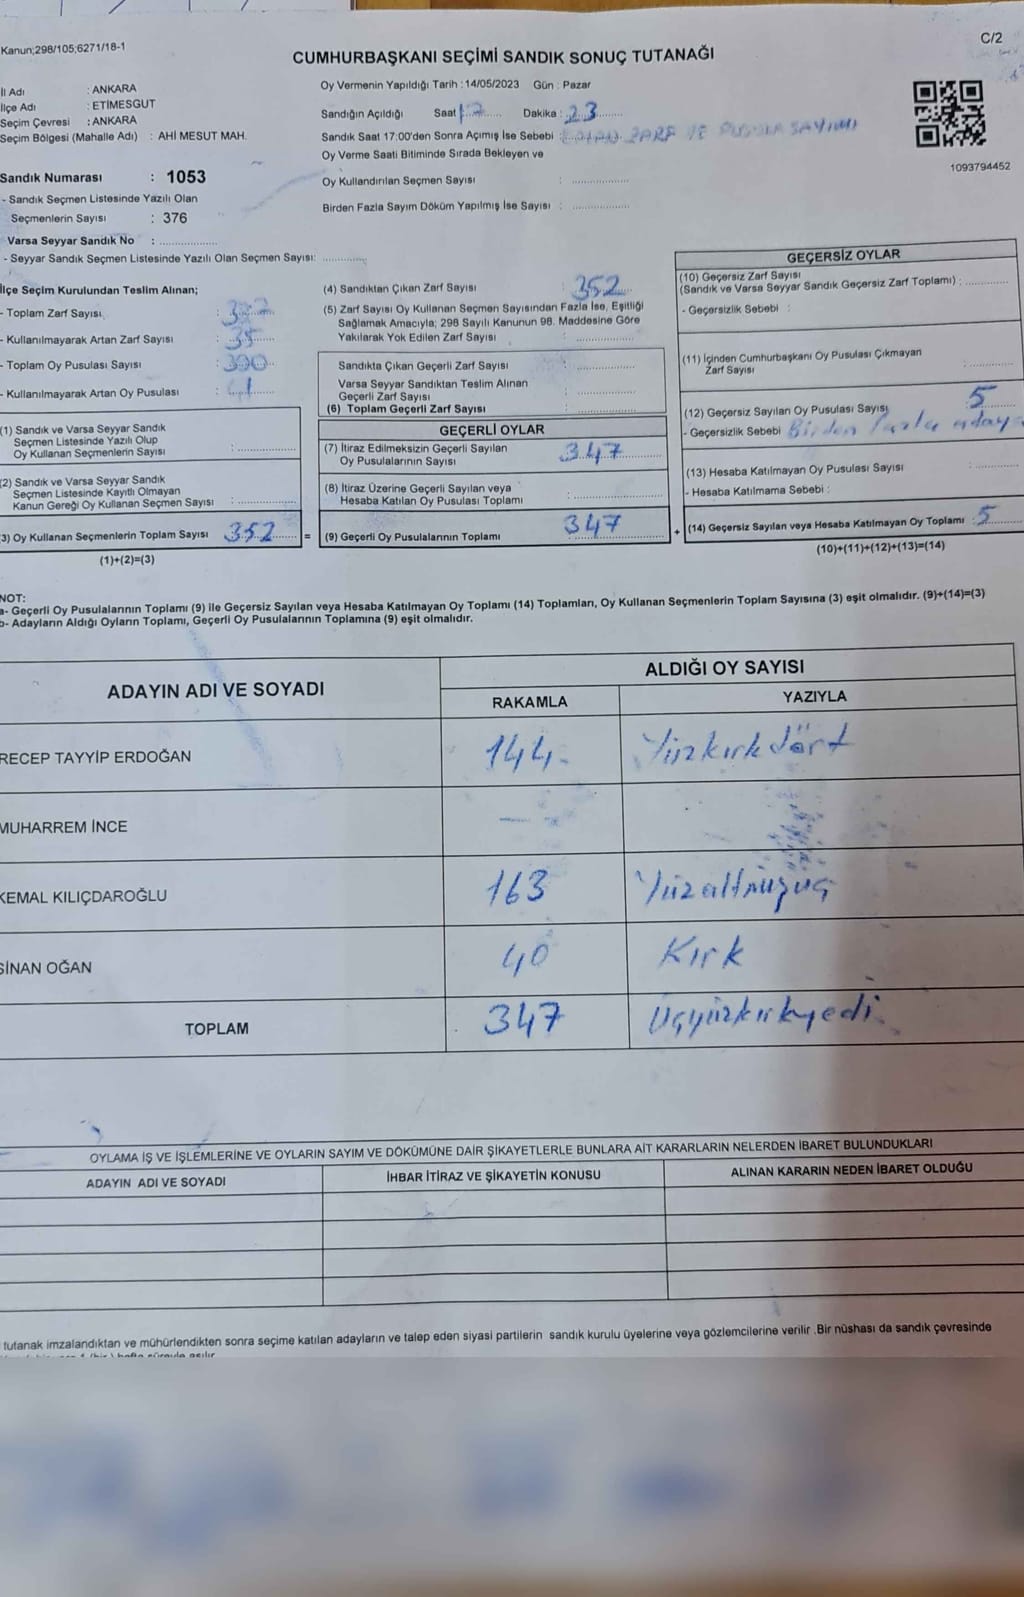 Kanun;298/105;6271/18-1
C/2
CUMHURBAŞKANI SEÇİMİ SANDIK SONUÇ TUTANAĞI
İl Adı : ANKARA
İlçe Adı : ETİMESGUT
Seçim Çevresi : ANKARA
Seçim Bölgesi (Mahalle Adı) : AHİ MESUT MAH.
Sandık Numarası : 1053
- Sandık Seçmen Listesinde Yazılı Olan
Seçmenlerin Sayısı : 376
Varsa Seyyar Sandık No :
- Seyyar Sandık Seçmen Listesinde Yazılı Olan Seçmen Sayısı:
Oy Vermenin Yapıldığı Tarih : 14/05/2023 Gün : Pazar
Sandığın Açıldığı Saat 17 Dakika : 23
Sandık Saat 17:00'den Sonra Açımış İse Sebebi : ZARF VE PUSULA SAYIMI
Oy Verme Saati Bitiminde Sırada Bekleyen ve
Oy Kullandırılan Seçmen Sayısı :
Birden Fazla Sayım Döküm Yapılmış İse Sayısı :
1093794452
İlçe Seçim Kurulundan Teslim Alınan;
- Toplam Zarf Sayısı :
- Kullanılmayarak Artan Zarf Sayısı : 35
- Toplam Oy Pusulası Sayısı : 390
- Kullanılmayarak Artan Oy Pusulası :
(1) Sandık ve Varsa Seyyar Sandık
Seçmen Listesinde Yazılı Olup
Oy Kullanan Seçmenlerin Sayısı :
(2) Sandık ve Varsa Seyyar Sandık
Seçmen Listesinde Kayıtlı Olmayan
Kanun Gereği Oy Kullanan Seçmen Sayısı :
(3) Oy Kullanan Seçmenlerin Toplam Sayısı 352 =
(1)+(2)=(3)
(4) Sandıktan Çıkan Zarf Sayısı : 352
(5) Zarf Sayısı Oy Kullanan Seçmen Sayısından Fazla İse, Eşitliği
Sağlamak Amacıyla; 298 Sayılı Kanunun 98. Maddesine Göre
Yakılarak Yok Edilen Zarf Sayısı :
Sandıkta Çıkan Geçerli Zarf Sayısı :
Varsa Seyyar Sandıktan Teslim Alınan
Geçerli Zarf Sayısı :
(6) Toplam Geçerli Zarf Sayısı :
GEÇERLİ OYLAR
(7) İtiraz Edilmeksizin Geçerli Sayılan
Oy Pusulalarının Sayısı : 347
(8) İtiraz Üzerine Geçerli Sayılan veya
Hesaba Katılan Oy Pusulası Toplamı :
(9) Geçerli Oy Pusulalarının Toplamı 347 +
GEÇERSİZ OYLAR
(10) Geçersiz Zarf Sayısı
(Sandık ve Varsa Seyyar Sandık Geçersiz Zarf Toplamı) :
- Geçersizlik Sebebi :
(11) İçinden Cumhurbaşkanı Oy Pusulası Çıkmayan
Zarf Sayısı :
(12) Geçersiz Sayılan Oy Pusulası Sayısı 5
- Geçersizlik Sebebi Birden fazla aday
(13) Hesaba Katılmayan Oy Pusulası Sayısı :
- Hesaba Katılmama Sebebi :
(14) Geçersiz Sayılan veya Hesaba Katılmayan Oy Toplamı : 5
(10)+(11)+(12)+(13)=(14)
NOT:
a- Geçerli Oy Pusulalarının Toplamı (9) ile Geçersiz Sayılan veya Hesaba Katılmayan Oy Toplamı (14) Toplamları, Oy Kullanan Seçmenlerin Toplam Sayısına (3) eşit olmalıdır. (9)+(14)=(3)
b- Adayların Aldığı Oyların Toplamı, Geçerli Oy Pusulalarının Toplamına (9) eşit olmalıdır.
ADAYIN ADI VE SOYADI
ALDIĞI OY SAYISI
RAKAMLA YAZIYLA
RECEP TAYYİP ERDOĞAN 144 Yüzkırkdört
MUHARREM İNCE —
KEMAL KILIÇDAROĞLU 163 Yüzaltmışüç
SİNAN OĞAN 40 Kırk
TOPLAM 347 Üçyüzkırkyedi
OYLAMA İŞ VE İŞLEMLERİNE VE OYLARIN SAYIM VE DÖKÜMÜNE DAİR ŞİKAYETLERLE BUNLARA AİT KARARLARIN NELERDEN İBARET BULUNDUKLARI
ADAYIN ADI VE SOYADI İHBAR İTİRAZ VE ŞİKAYETİN KONUSU ALINAN KARARIN NEDEN İBARET OLDUĞU
tutanak imzalandıktan ve mühürlendikten sonra seçime katılan adayların ve talep eden siyasi partilerin sandık kurulu üyelerine veya gözlemcilerine verilir .Bir nüshası da sandık çevresinde